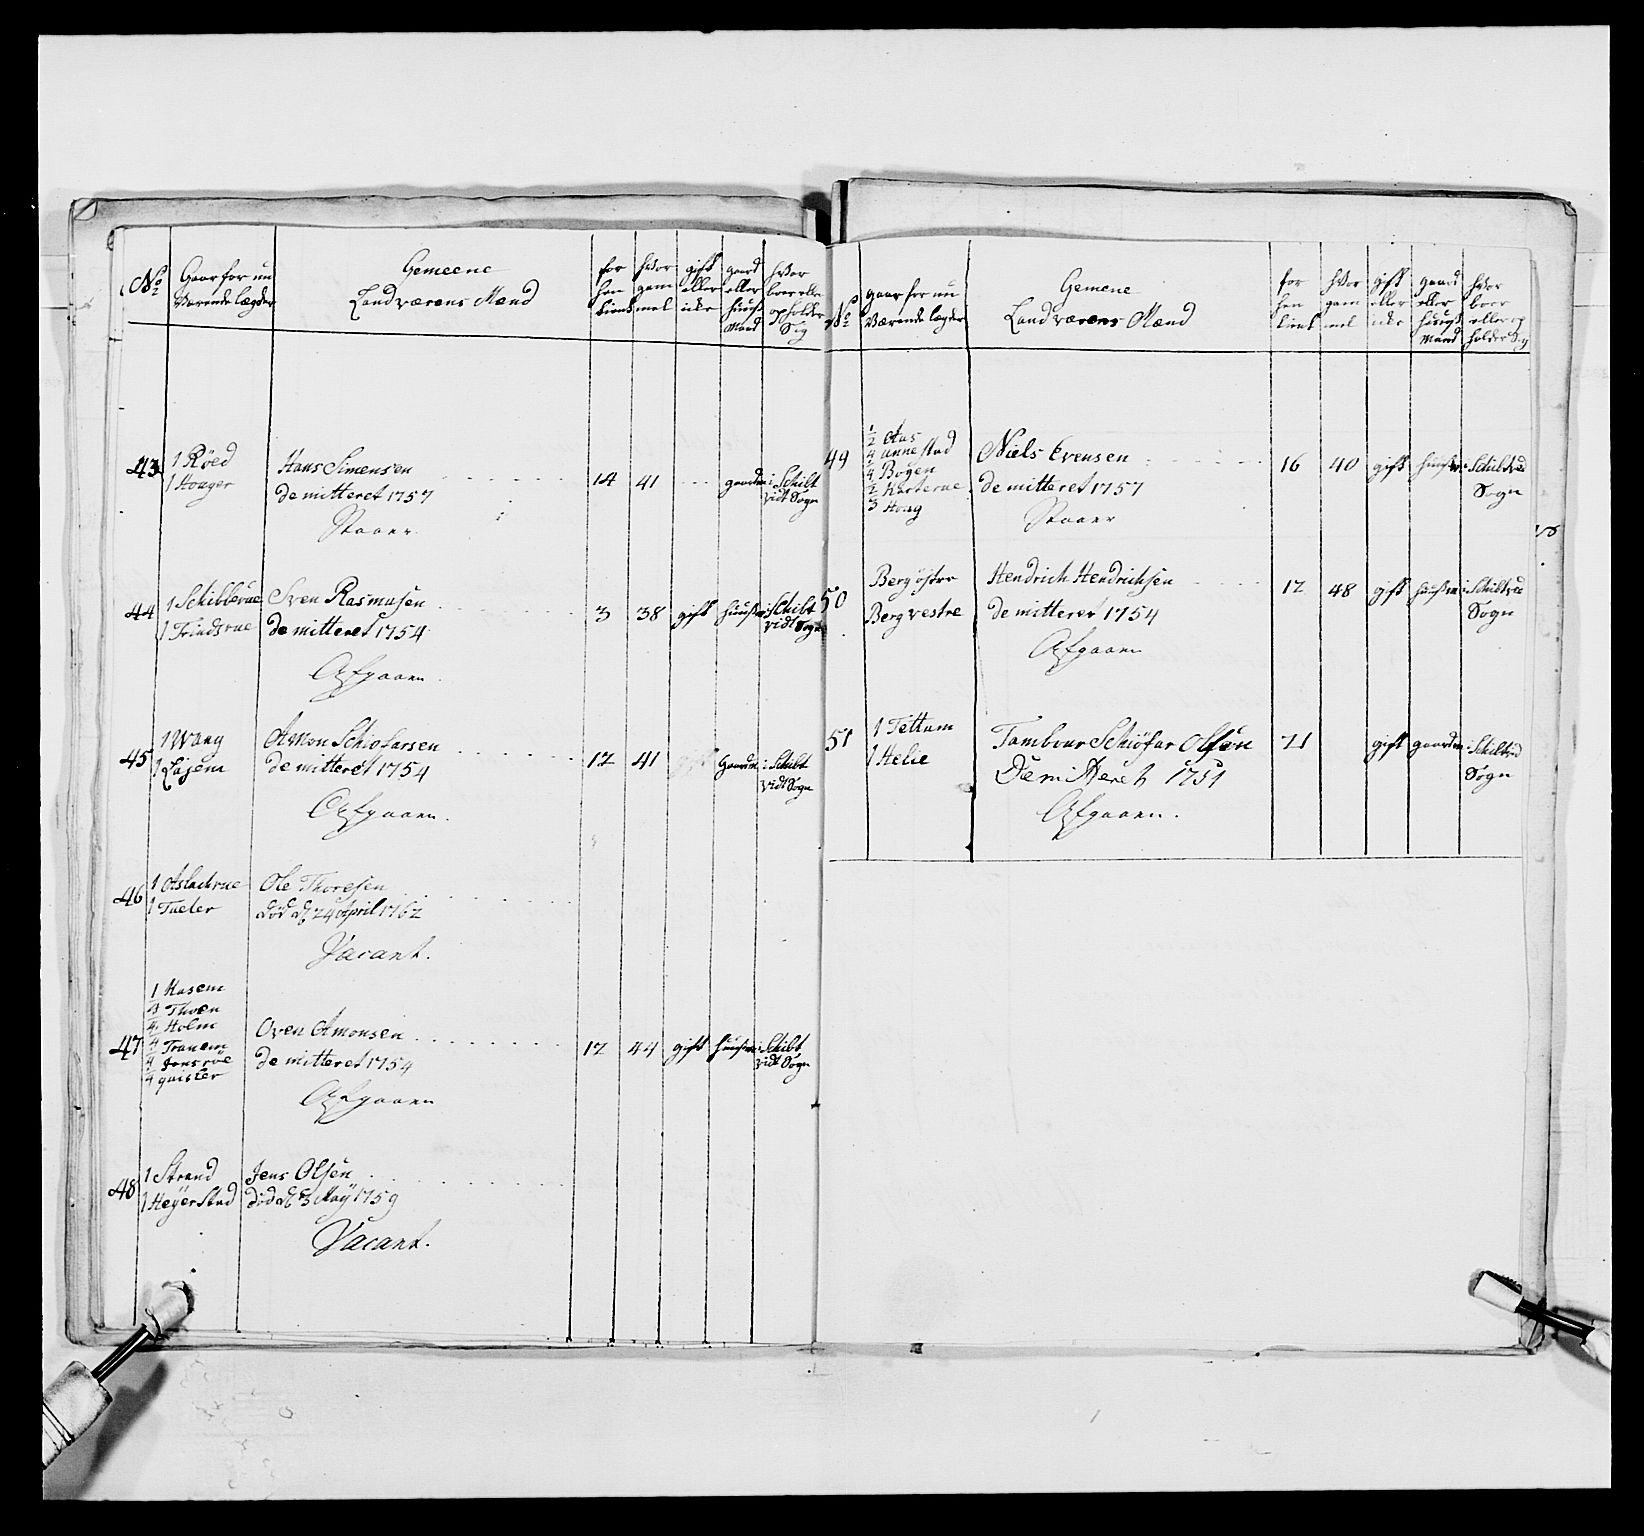 No
Gaar for nu
Værende lægder
Gemeene
Landværens Mænd
for
hen
tient
hvor
gam
mel
gift
eller
icke
gaard
eller
huus
Mand
hvor
boer eller
opholder
Sig
43
1 Røed
1 Houger
Hans Simensen
demitteret 1757
Staaer
14
41
gaardm
i Schibt
vidt Sogn
44
1 Schibberue
1 Trindsrue
Sven Rasmusen
demitteret 1754
Afgaaen
3
38
gift
huusm
i Schibt
vidt Sogn
45
1 Wang
1 Lajem
Amon Schiofarsen
demitteret 1754
Afgaaen.
12
41
gaardm
i Schibt
vidt Sogn
46
1 Aslachrue
1 Tueter
Ole Thoresen
død d 24 April 1762
Vacant.
47
1 Hasem
3/4 Thoen
Holm
Tranem
Jonsrøe
quister
Oven Amonsen
demitteret 1754
Afgaaen
12
44
gift
huusm
i Schibt
vidt Sogn
48
1 Strand
1 Heyerstad
Jens Olsen
død d 3 May 1759
Vacant.
No
gaar for nu
Værende lægder
Gemene
Landværens Mænd
for
hen
tient
hvor
gam
mel
gift
eller
icke
gaard
eller
huus
Mand
hvor
boer
eller op
holder Sig
49
1/2 Aas
Annestad
Bøgen
Karterue
Houg
Niels Evensen
demitteret 1757
Staaer
16
40
gift
huusm
i Schiltved
Sogn
50
Berg østre
Berg vestre
Hendrich Hendrichsen
demitteret 1754
Afgaaen
12
48
gift
huusm
i Schiltved
Sogn
51
1 Tettum
1 Helie
Tambour Schiöfar Olsen
Demitteret 1751
Afgaaen.
21
gift
gaardm
i Schiltved
Sogn